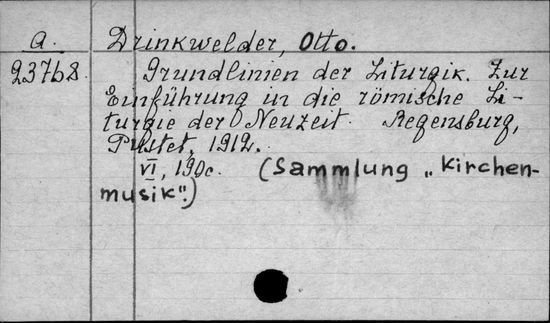 a. Drinkwelder, Otto.
23768 Grundlinien der Liturgik. Zur
Einführung in die römische Li-
turgie der Neuzeit. Regensburg,
Pustet, 1912.
VI, 190c. (Sammlung „Kirchen-
musik".)